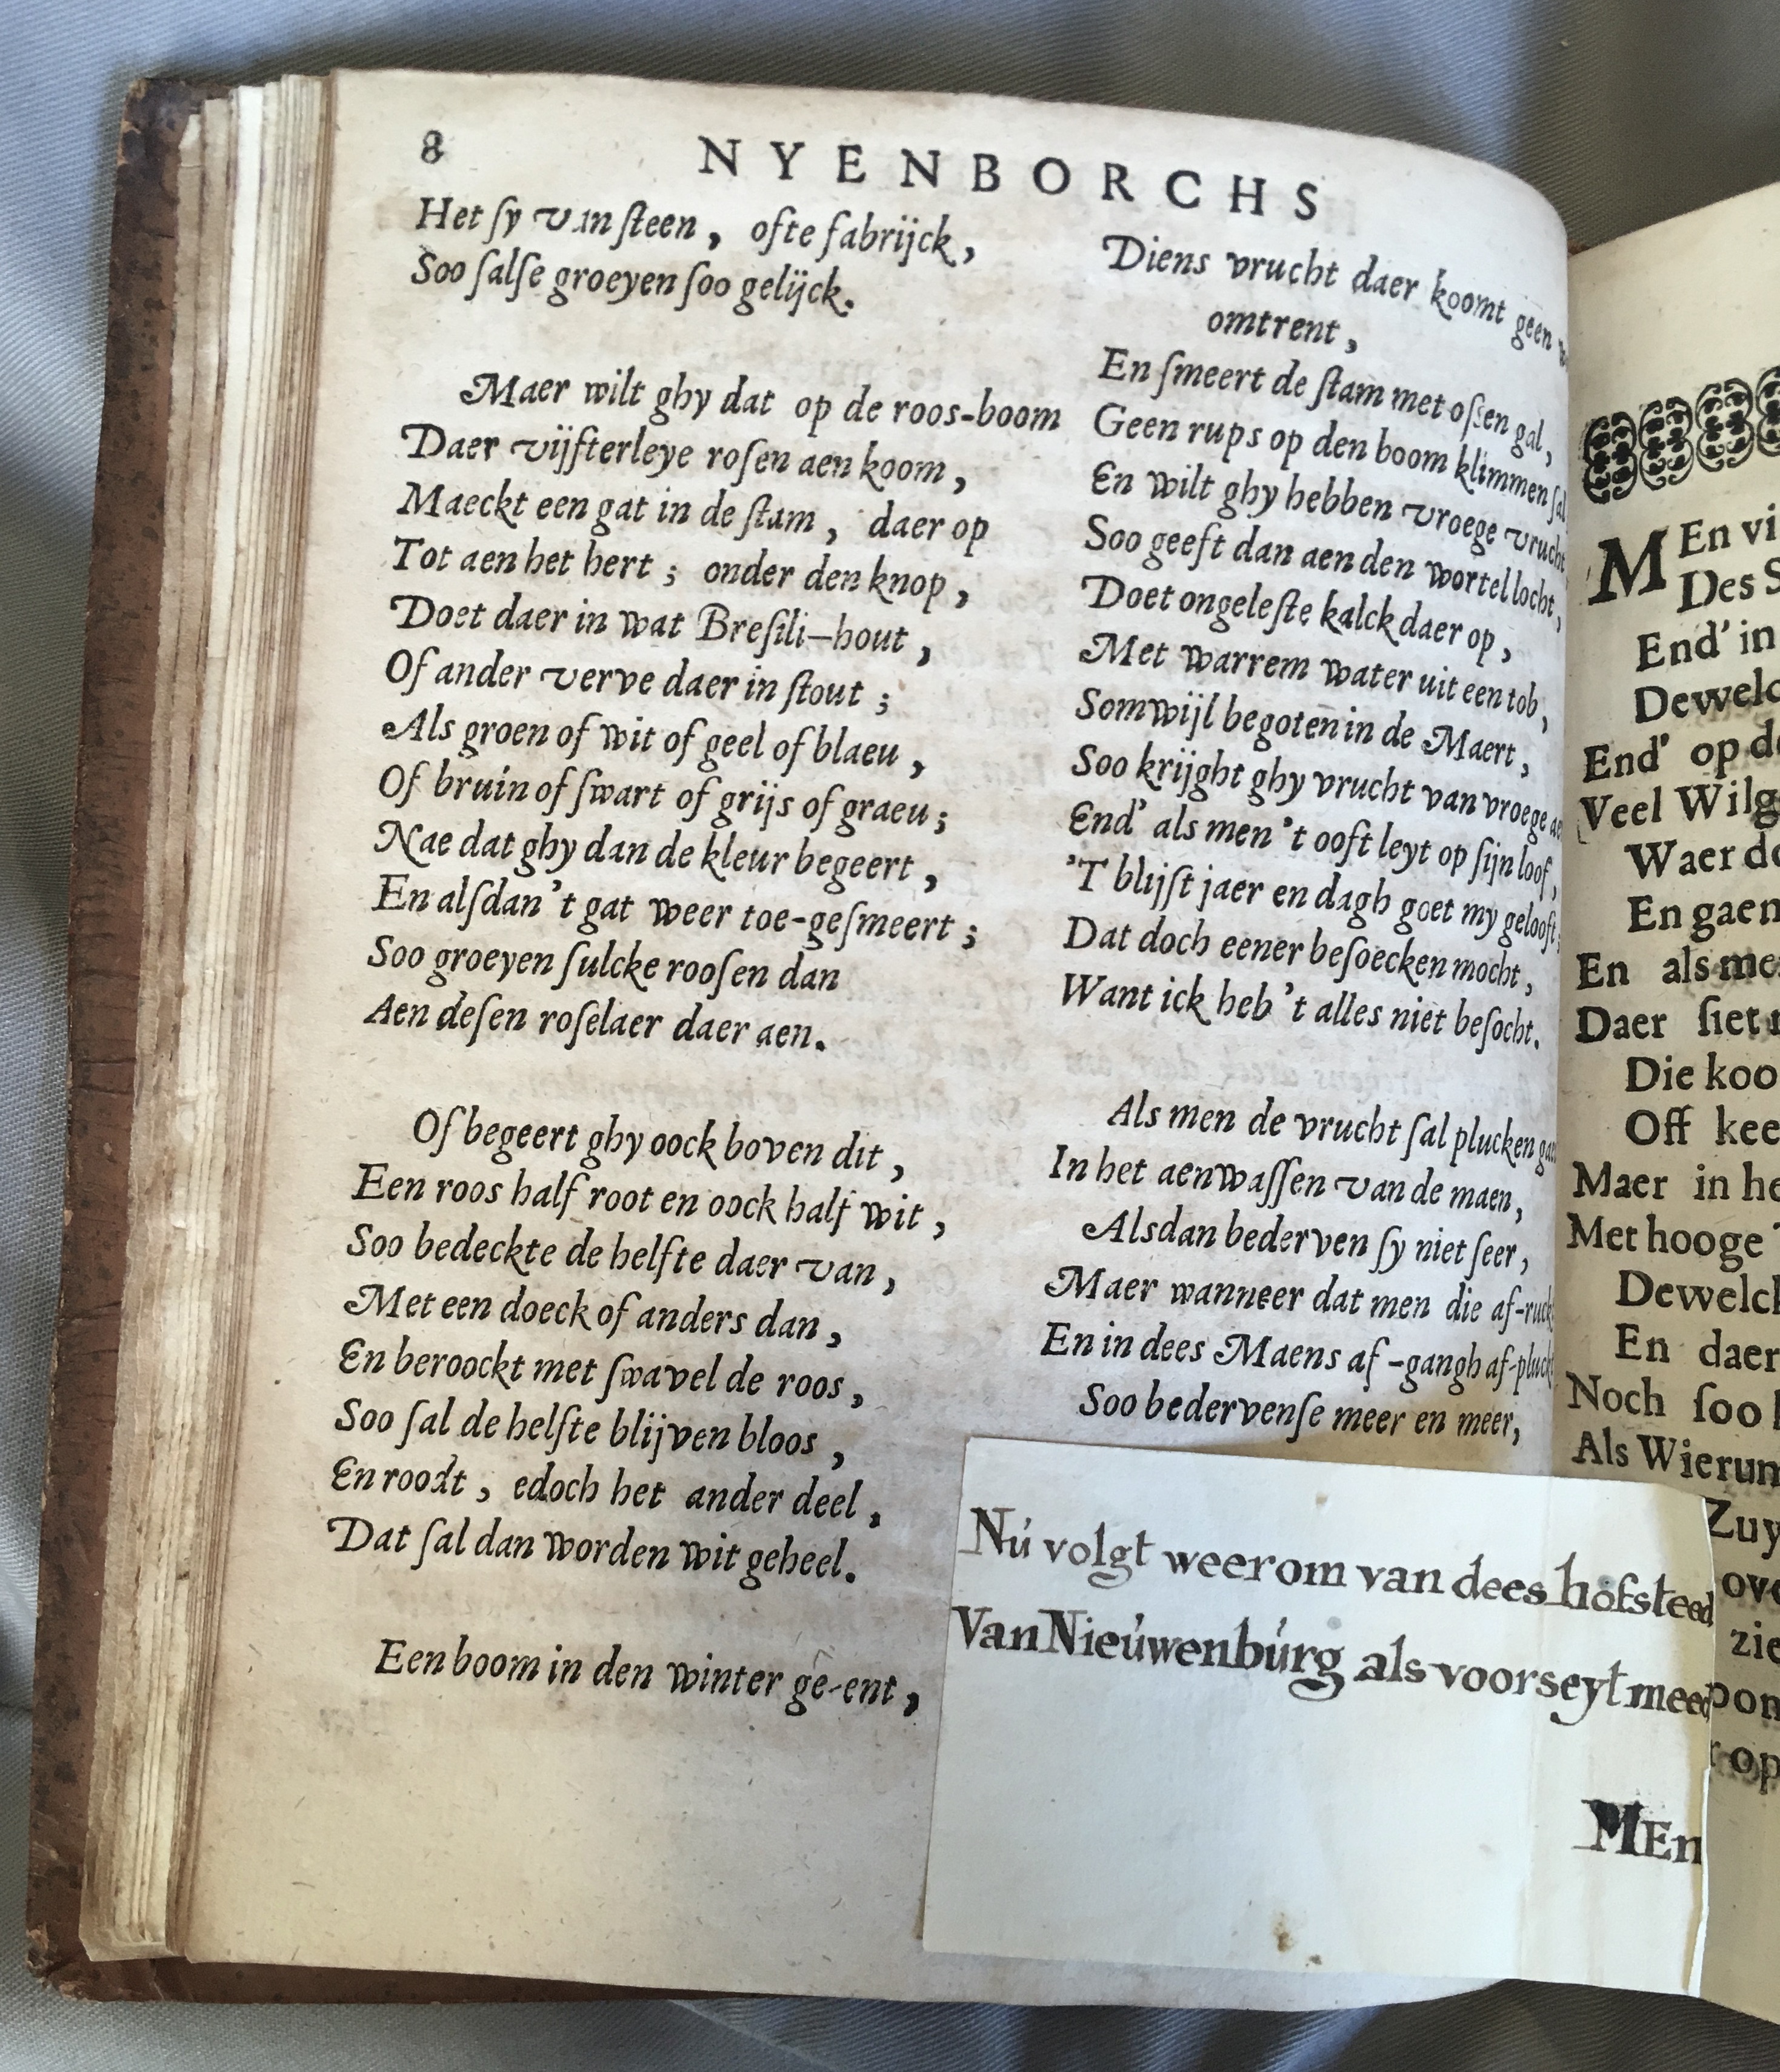 8 NYENBORCHS
Het ſy van ſteen, ofte fabrijck,
Soo ſalſe groeyen ſoo gelijck.
Maer wilt ghy dat op de roos-boom
Daer vijfterleye roſen aen koom,
Maeckt een gat in de ſtam, daer op
Tot aen het hert; onder den knop,
Doet daer in wat Breſili-hout,
Of ander verve daer in ſtout;
Als groen of wit of geel of blaeu,
Of bruin of ſwart of grijs of graeu;
Nae dat ghy dan de kleur begeert,
En alſdan 't gat weer toe-geſmeert;
Soo groeyen ſulcke rooſen dan
Aen deſen roſelaer daer aen.
Of begeert ghy oock boven dit,
Een roos half root en oock half wit,
Soo bedeckte de helfte daer van,
Met een doeck of anders dan,
En beroockt met ſwavel de roos,
Soo ſal de helfte blijven bloos,
En roodt, edoch het ander deel,
Dat ſal dan worden wit geheel.
Een boom in den winter ge-ent,
Diens vrucht daer koomt geen
omtrent,
En ſmeert de ſtam met oſſen gal,
Geen rups op den boom klimmen ſal
En wilt ghy hebben vroege vrucht
Soo geeft dan aen den wortel locht,
Doet ongeleſte kalck daer op,
Met warrem water uit een tob,
Somwijl begoten in de Maert,
Soo krijght ghy vrucht van vroege
End' als men 't ooft leyt op ſijn loof,
'T blijft jaer en dagh goet my gelooft,
Dat doch eener beſoecken mocht,
Want ick heb 't alles niet beſocht.
Als men de vrucht ſal plucken
In het aenwaſſen van de maen,
Alsdan bederven ſy niet ſeer,
Maer wanneer dat men die af-ruckt
En in dees Maens af-gangh af-pluckt
Soo bedervenſe meer en meer,
Nú volgt weerom van dees hofsteed
Van Nieúwenbúrg als voorseyt meed
MEn
MEn vi
Des S
End' in
Dewelc
End' op de
Veel Wilg
Waer do
En gaen
En als me
Daer ſiet
Die koo
Off kee
Maer in he
Met hooge
Dewelck
En daer
Noch ſoo
Als Wierum
Zuy
ove
zie
pon
op